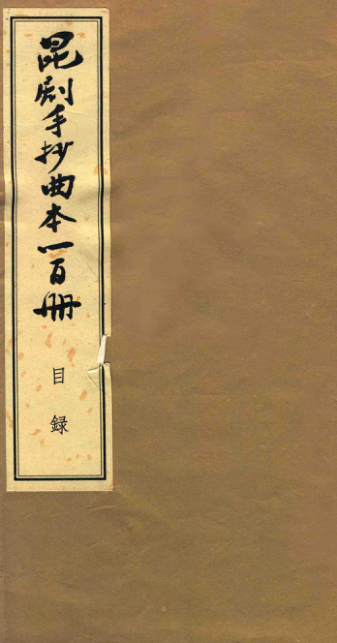 昆剧手抄曲本一百册
目録